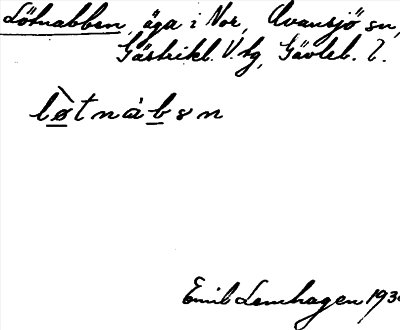 Lötnabben, äga i Nor, Ovansjö sn,
Gästrikl. V. tg, Gävleb. l.
lø̀tnàbən
Emil Lenhagen 193